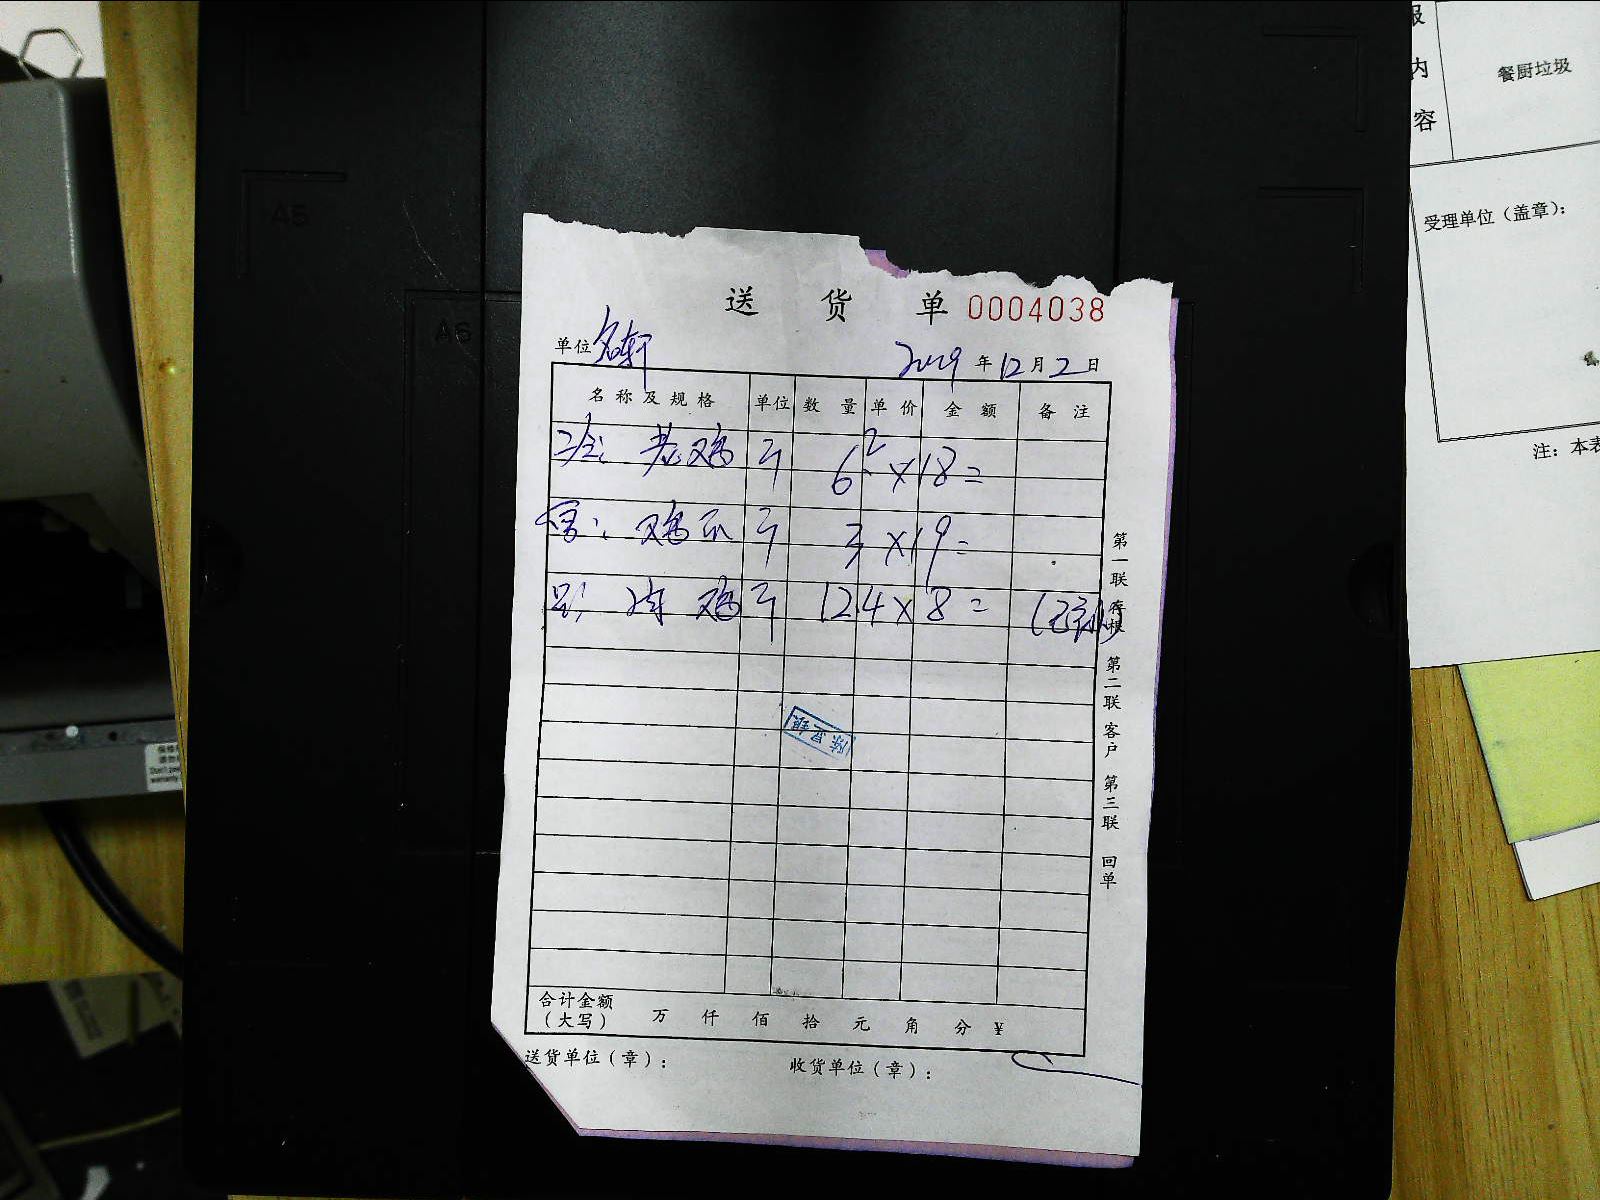 送货单 0004038
单位 名轩
2019 年 12 月 2 日
名称及规格 单位 数量 单价 金额 备注
老鸡 斤 6.2 × 18 =
鸡爪 斤 3 × 19 =
鸡 斤 124 × 8 =
合计金额
(大写) 万 仟 佰 拾 元 角 分 ¥
送货单位(章): 收货单位(章):
第一联 存根 第二联 客户 第三联 回单
A5
A6
服
内
容
餐厨垃圾
受理单位(盖章):
注:本表